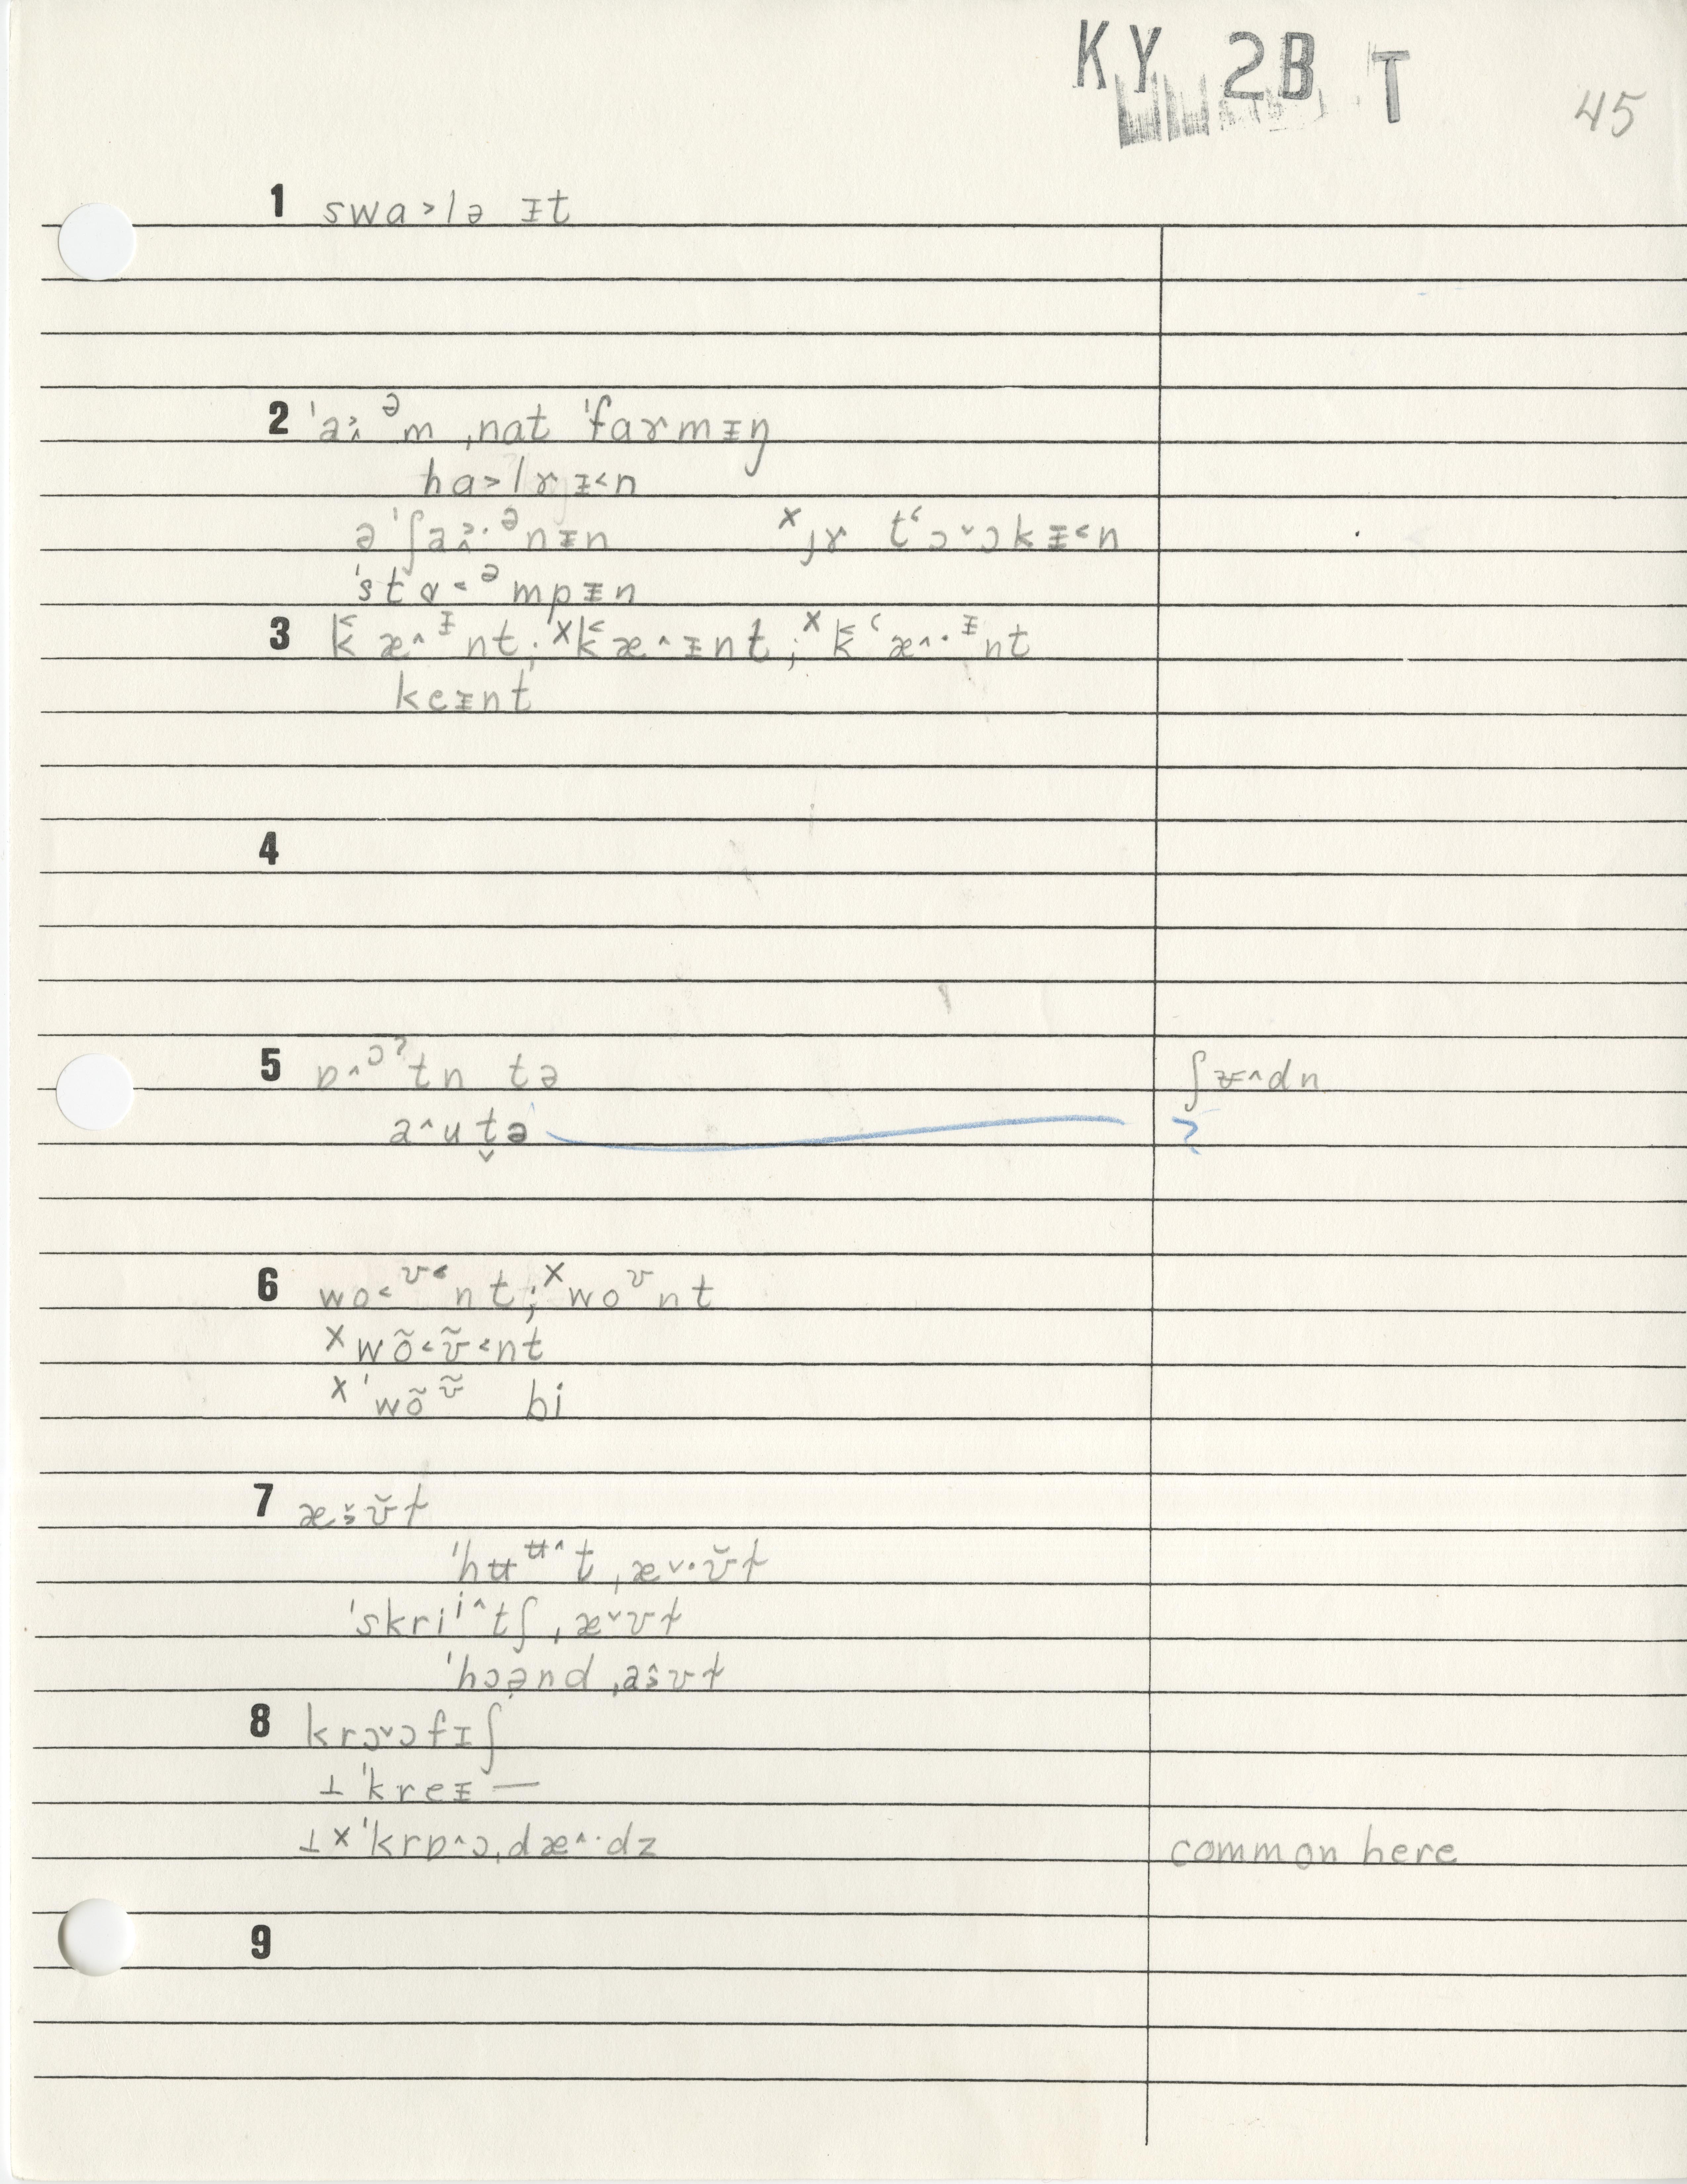 KY 2B T
45
1 swa˃lə ᵻt
2 ˈaᵻ̯ᵊm ˌnat ˈfaɤmᵻŋ
ha˃lɤᵻ˂n
əˈʃaᵻ·ᵊnᵻn ˣˌjɤ tʻɔˇɔkᵻ˂n
ˈstɑ˂ᵊmpᵻn
3 k˂æ^ᵻnt; ˣk˂æ^ᵻnt; ˣk˂ʻæ^·ᵻnt
keᵻnt
5 ɒ^ᵓˀtn tə ʃᵿ^dn
a^ut̬ə ?
6 wo˂ᶹ˂nt; ˣwoᶹnt
ˣwõ˂ʊ̃˂nt
ˣˈwõʊ̃ bi
7 æˇ·ʊ̆ɫ
ˈhʉᶶ^t ˌæˇ·ʊ̆ɫ
ˈskriⁱ^tʃ ˌæˇʊɫ
ˈhɔə̯nd ˌa^·ʊɫ
8 krɔˇɔfɪʃ
⊥ ˈkreᵻ—
⊥ˣˈkrɒ^ɔˌdæ^·dz common here
9